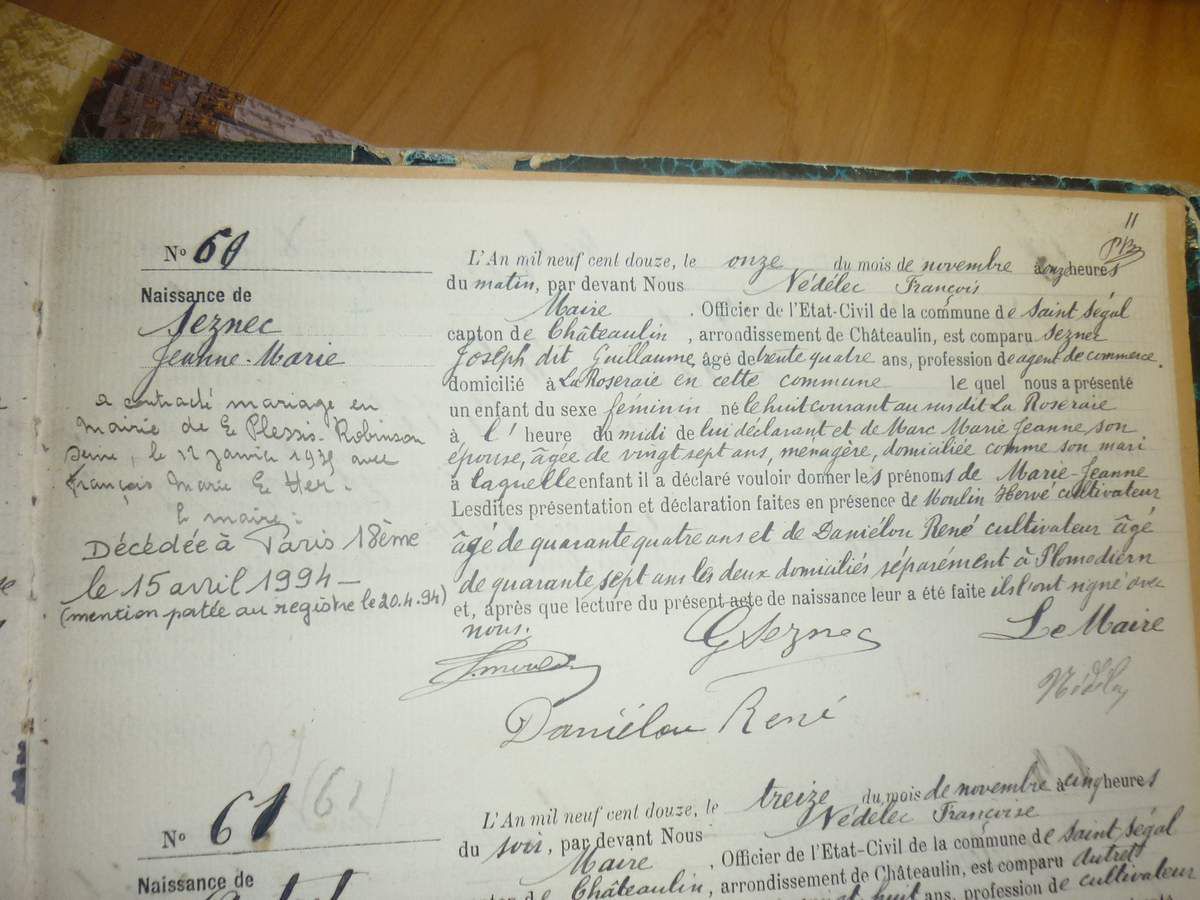 11
N° 60
Naissance de
Seznec
Jeanne-Marie
a contracté mariage en
Mairie de Le Plessis-Robinson
Seine, le 12 janvier 1935 avec
François Marie Le Her.
le maire:
Décédée à Paris 18ème
le 15 avril 1994 -
(mention portée au registre le 20.4.94)
L'An mil neuf cent douze, le onze du mois de novembre à onze heures
du matin, par devant Nous Nédélec François
Maire, Officier de l'Etat-Civil de la commune de Saint Ségal
canton de Châteaulin, arrondissement de Châteaulin, est comparu Seznec
Joseph dit Guillaume, âgé de trente quatre ans, profession de agent de commerce
domicilié à La Roseraie en cette commune le quel nous a présenté
un enfant du sexe féminin né le huit courant au sus dit La Roseraie
à l' heure du midi de lui déclarant et de Marc Marie Jeanne, son
épouse, âgée de vingt sept ans, ménagère, domiciliée comme son mari
à laquelle enfant il a déclaré vouloir donner les prénoms de Marie-Jeanne
Lesdites présentation et déclaration faites en présence de Moulin Hervé cultivateur
âgé de quarante quatre ans et de Daniélou René cultivateur âgé
de quarante sept ans les deux domiciliés séparément à Plomodiern
et, après que lecture du présent acte de naissance leur a été faite ils ont signé avec
nous.
G Seznec
Le Maire
Nédélec
Daniélou René
N° 61 (62)
Naissance de
L'An mil neuf cent douze, le treize du mois de novembre à cinq heures
du soir, par devant Nous Nédélec Françoise
Maire, Officier de l'Etat-Civil de la commune de Saint Ségal
de Châteaulin, arrondissement de Châteaulin, est comparu Autret
huit ans, profession de cultivateur